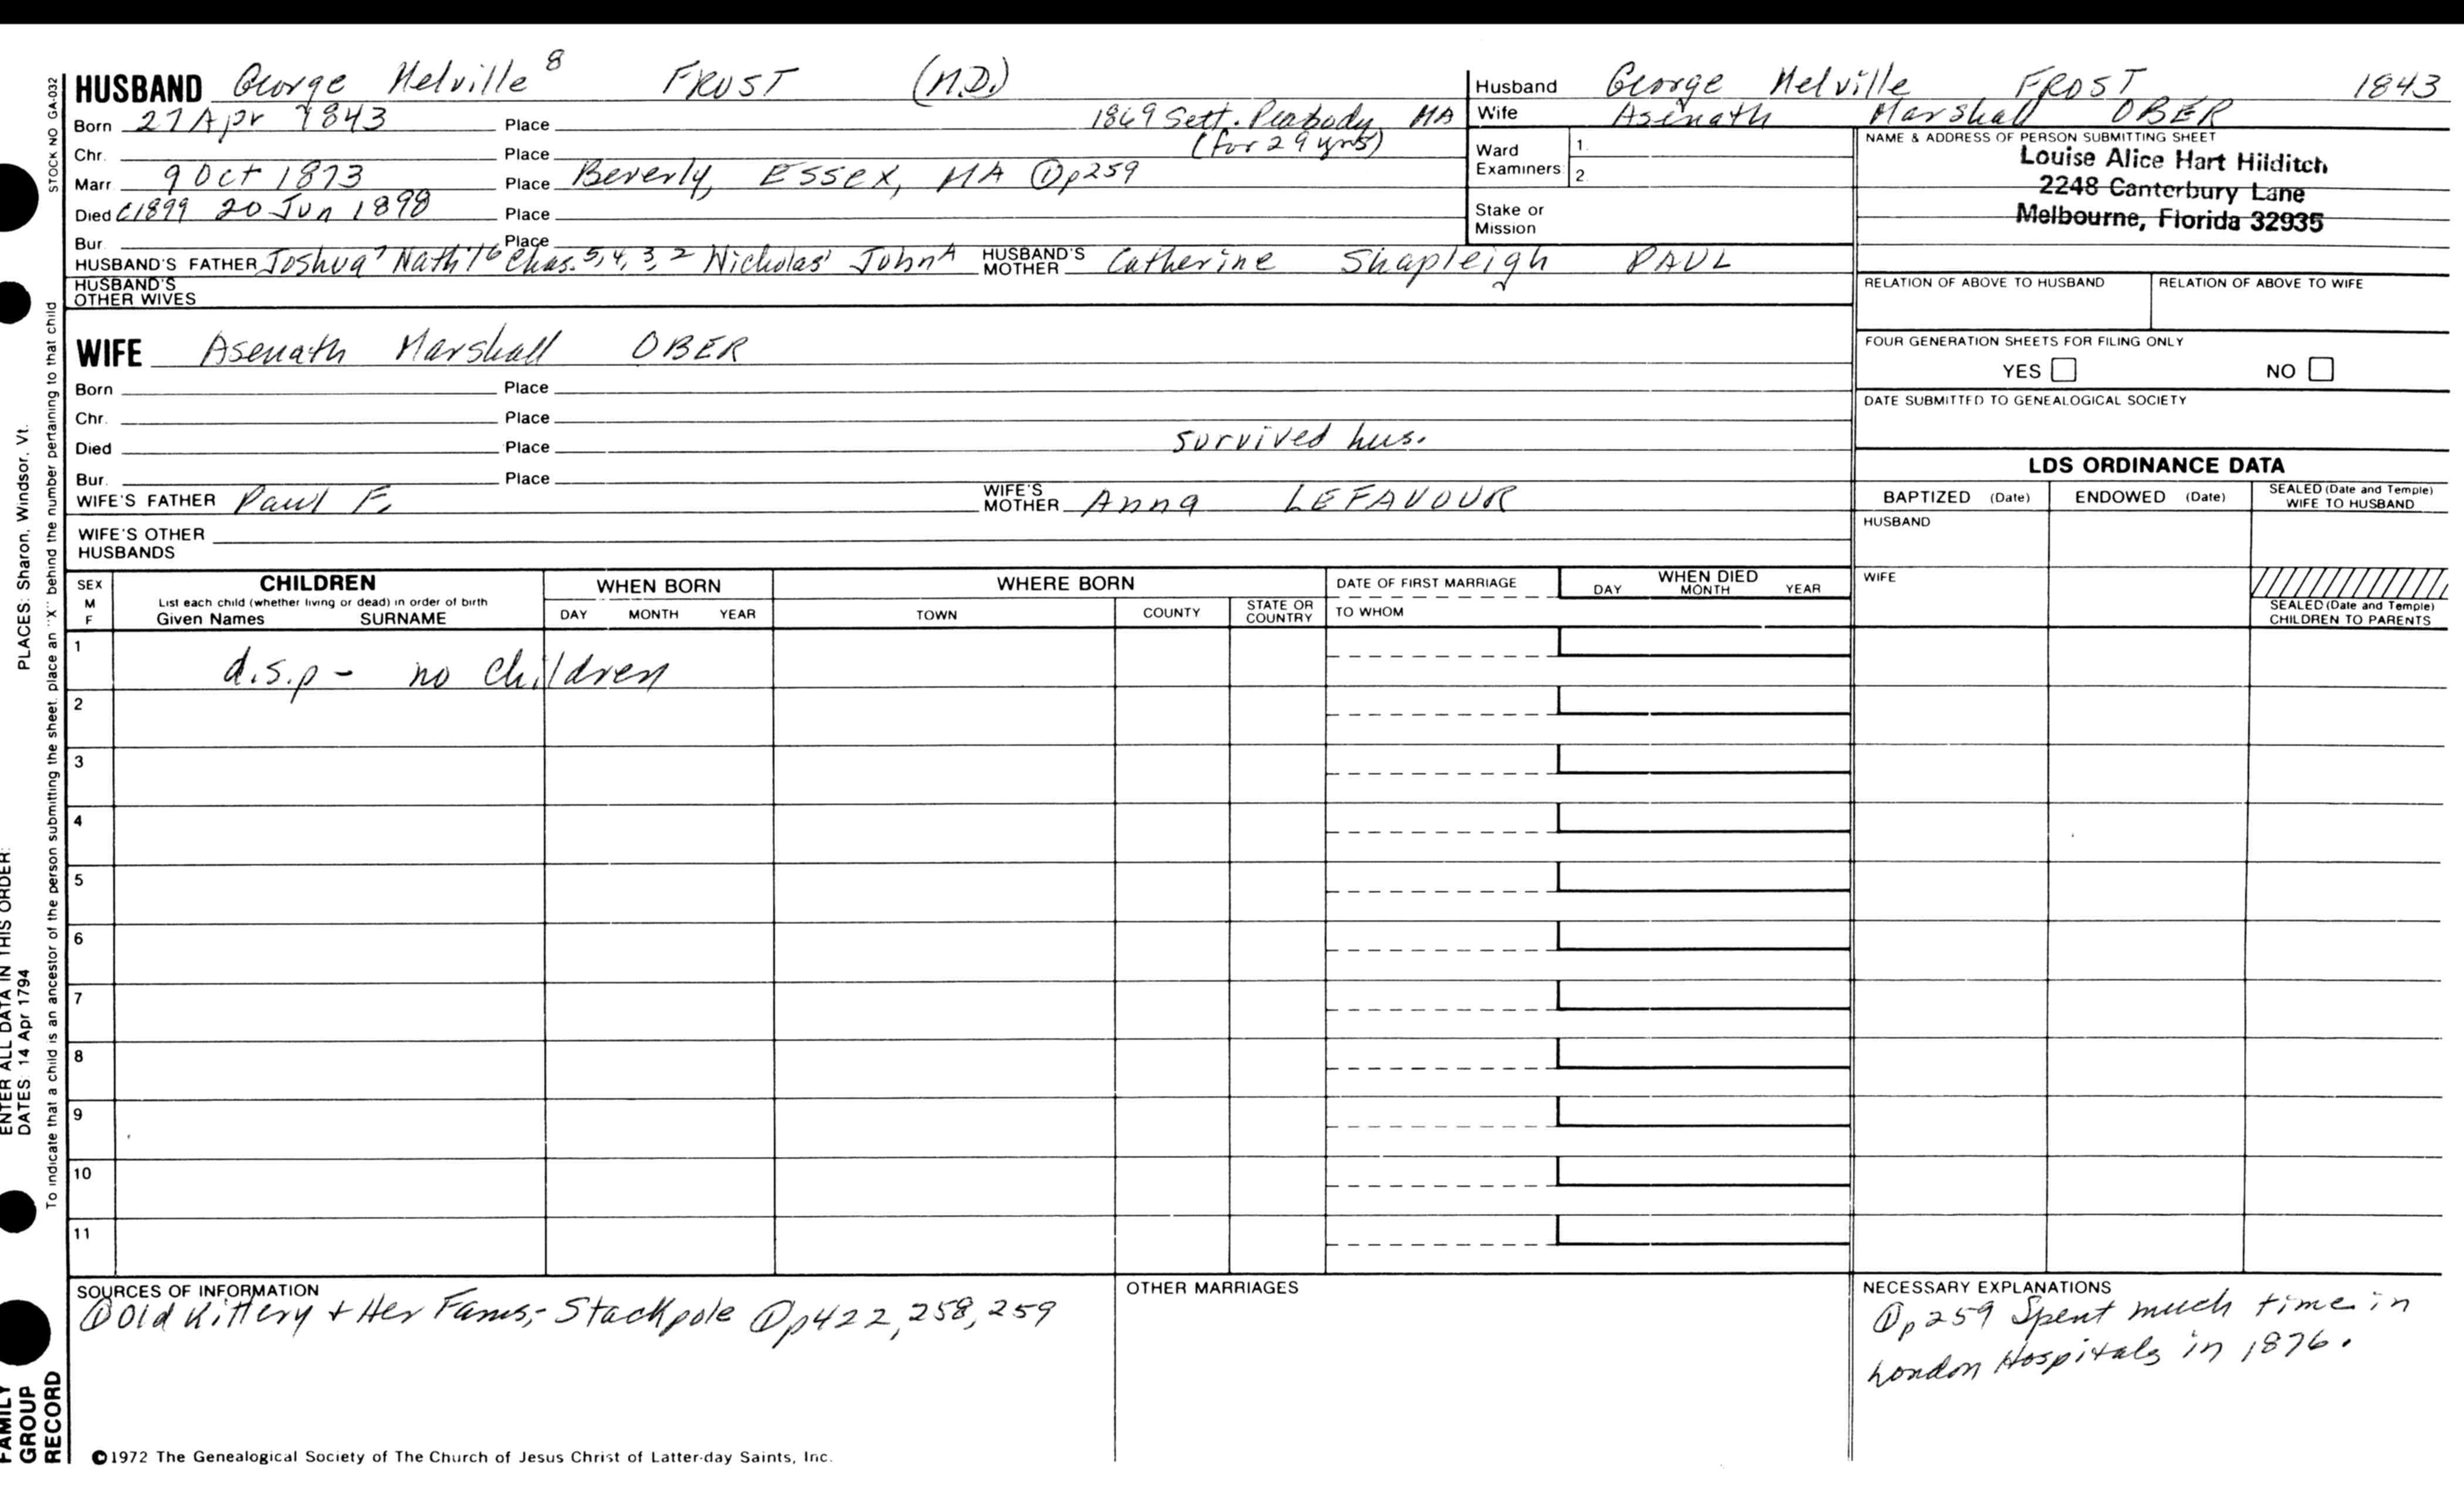 HUSBAND George Melville 8 FROST (M.D.)
Born 27 Apr 1843 Place 1869 Sett. Peabody MA
Chr. Place (for 29 yrs)
Marr 9 Oct 1873 Place Beverly, ESSEX, MA ① p259
Died C1899 20 Jun 1898 Place
Bur. Place
HUSBAND'S FATHER Joshua 7 Nath'l 6 Chas. 5, 4, 3, 2 Nicholas 1 John A HUSBAND'S MOTHER Catherine Shapleigh PAUL
HUSBAND'S OTHER WIVES
Husband George Melville FROST 1843
Wife Asenath Marshall OBER
Ward Examiners: 1.
2.
Stake or Mission
NAME & ADDRESS OF PERSON SUBMITTING SHEET
Louise Alice Hart Hilditch
2248 Canterbury Lane
Melbourne, Florida 32935
RELATION OF ABOVE TO HUSBAND RELATION OF ABOVE TO WIFE
FOUR GENERATION SHEETS FOR FILING ONLY
YES NO
DATE SUBMITTED TO GENEALOGICAL SOCIETY
WIFE Asenath Marshall OBER
Born Place
Chr. Place
Died Place survived hus.
Bur. Place
WIFE'S FATHER Paul F. WIFE'S MOTHER Anna LEFAVOUR
WIFE'S OTHER HUSBANDS
LDS ORDINANCE DATA
BAPTIZED (Date) ENDOWED (Date) SEALED (Date and Temple) WIFE TO HUSBAND
HUSBAND
WIFE
SEALED (Date and Temple) CHILDREN TO PARENTS
SEX M F
CHILDREN
List each child (whether living or dead) in order of birth
Given Names SURNAME
WHEN BORN
DAY MONTH YEAR
WHERE BORN
TOWN COUNTY STATE OR COUNTRY
DATE OF FIRST MARRIAGE
TO WHOM
WHEN DIED
DAY MONTH YEAR
1 d.s.p - no children
2
3
4
5
6
7
8
9
10
11
SOURCES OF INFORMATION
① Old Kittery + Her Fams,- Stackpole ① p422, 258, 259
OTHER MARRIAGES
NECESSARY EXPLANATIONS
① p259 Spent much time in
London Hospitals in 1876.
©1972 The Genealogical Society of The Church of Jesus Christ of Latter-day Saints, Inc.
STOCK NO GA-032
To indicate that a child is an ancestor of the person submitting the sheet, place an "X" behind the number pertaining to that child
PLACES: Sharon, Windsor, Vt.
ENTER ALL DATA IN THIS ORDER:
DATES: 14 Apr 1794
FAMILY
GROUP
RECORD